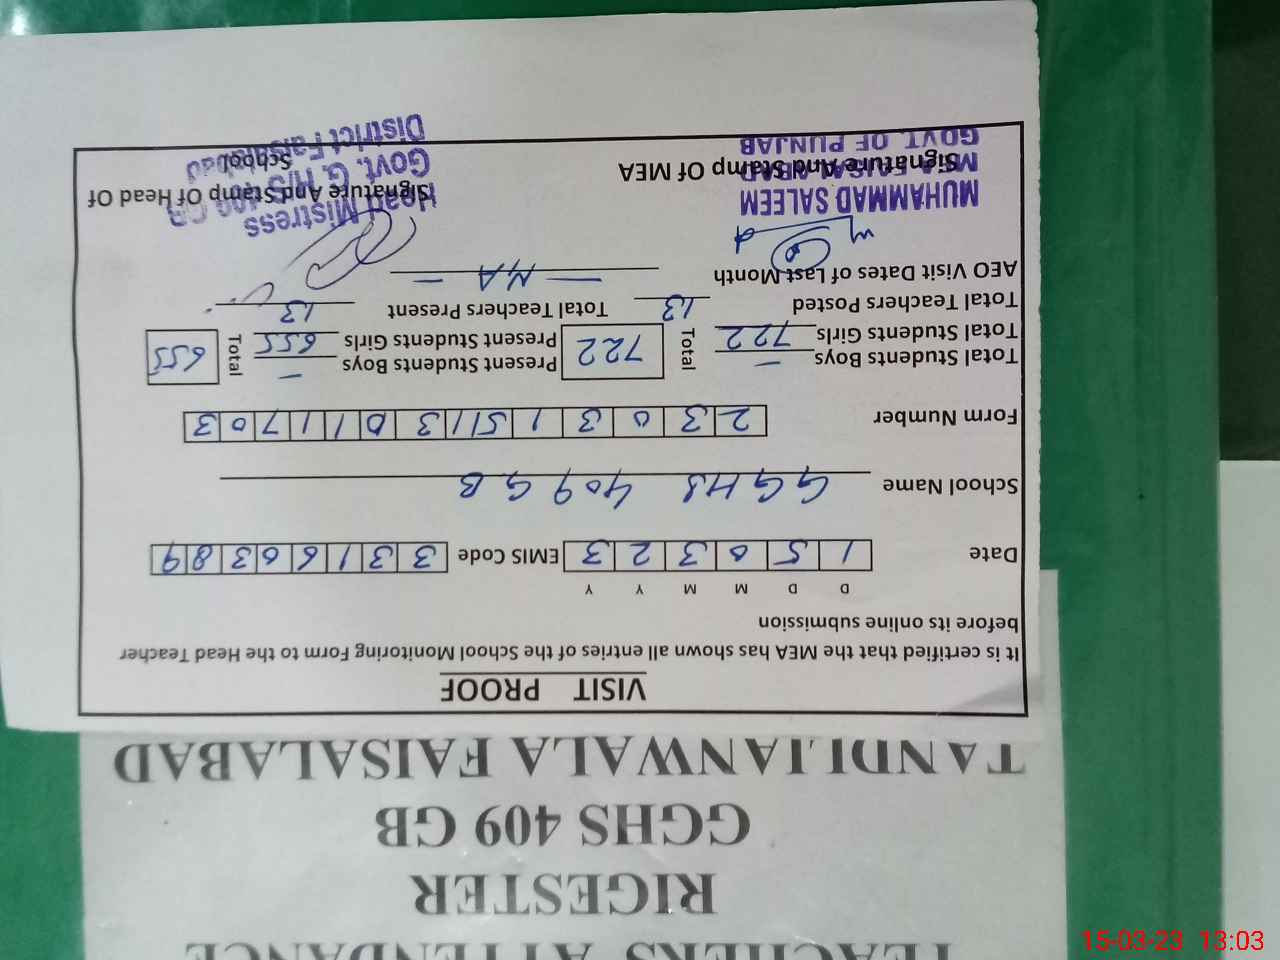 TEACHERS ATTENDANCE
RIGESTER
GGHS 409 GB
TANDLIANWALA FAISALABAD
VISIT PROOF
It is certified that the MEA has shown all entries of the School Monitoring Form to the Head Teacher
before its online submission
D D M M Y Y
Date 1 5 0 3 2 3 EMIS Code 3 3 1 6 0 3 8 9
School Name GGHS 409 GB
Form Number 2 3 0 3 1 5 1 3 0 1 1 7 0 3
Total Students Boys — Total 722 Present Students Boys — Total 655
Total Students Girls 722 Present Students Girls 655
Total Teachers Posted 13 Total Teachers Present 13
AEO Visit Dates of Last Month — N/A —
MUHAMMAD SALEEM
MEA FAISALABAD
GOVT. OF PUNJAB
Signature And Stamp Of MEA
Head Mistress
Govt. G. H/S 409 GB
District Faisalabad
Signature And Stamp Of Head Of
School
15-03-23 13:03